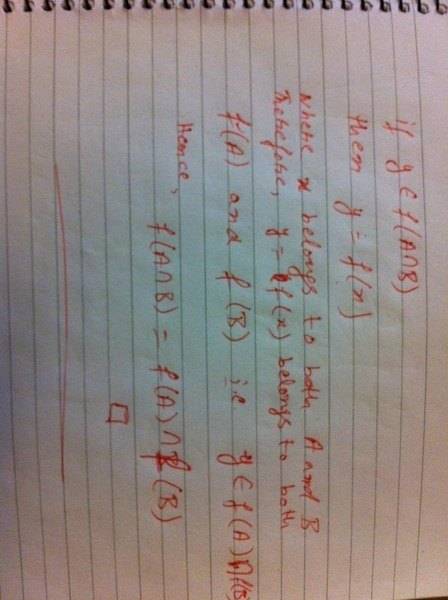 if y ∈ f(A∩B)
then y = f(x)
where x belongs to both A and B
Therefore, y = f(x) belongs to both
f(A) and f(B) i.e y ∈ f(A)∩f(B)
Hence,
f(A∩B) = f(A)∩f(B)
□